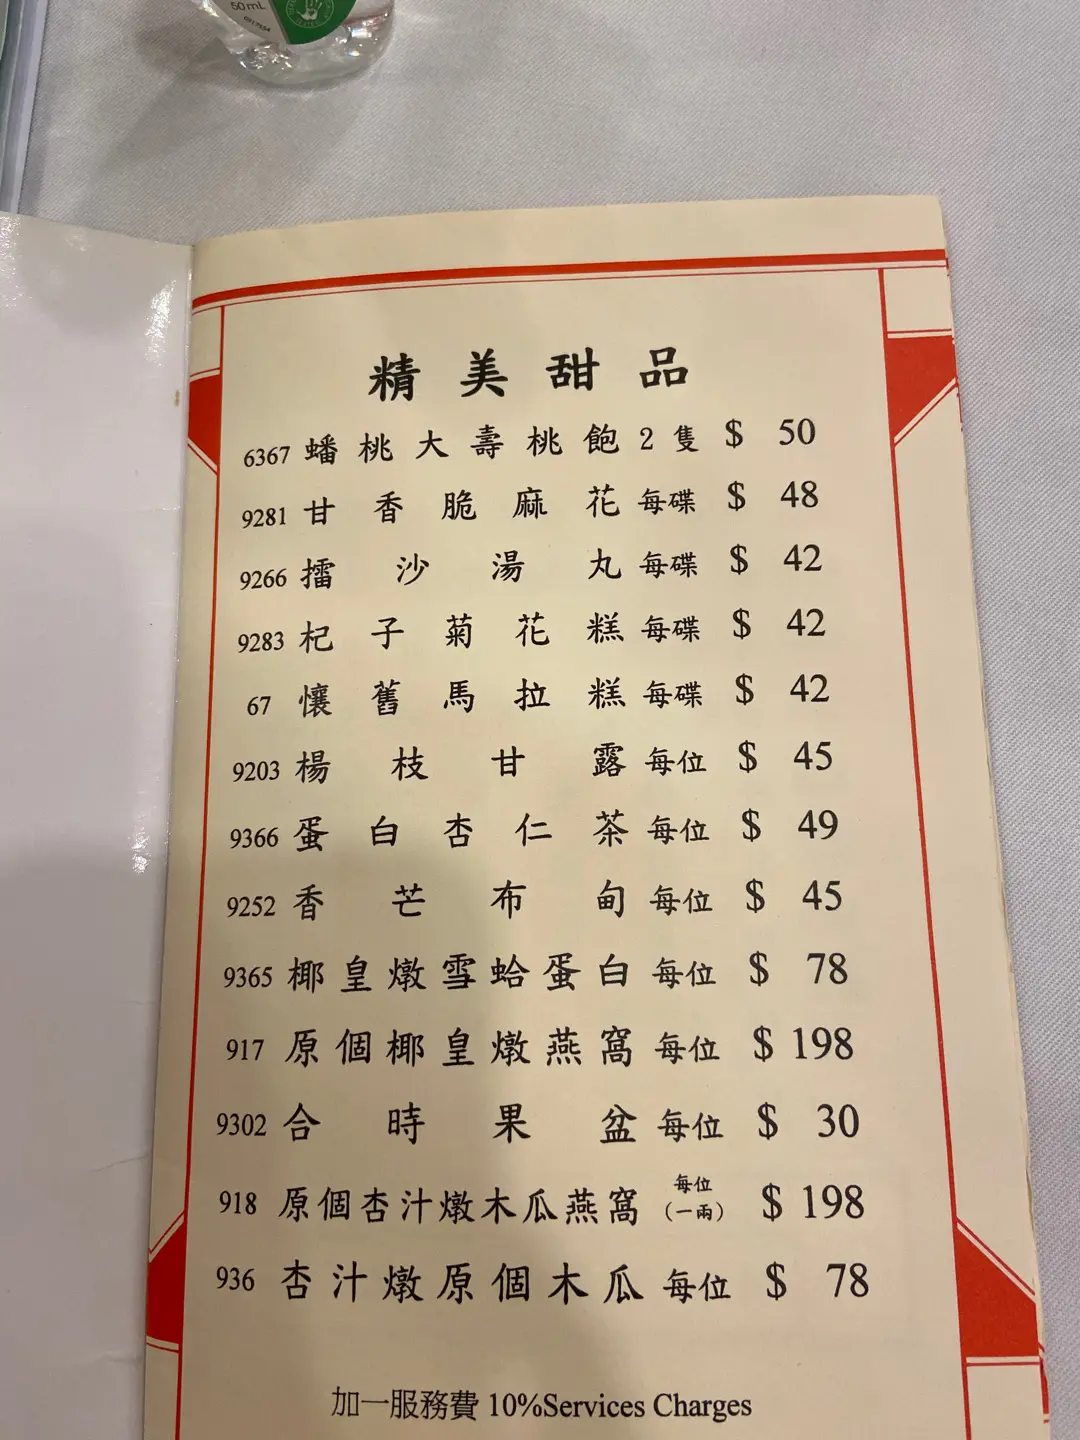 50mL
0917934
精美甜品
6367 蟠桃大壽桃飽 2隻 $ 50
9281 甘香脆麻花 每碟 $ 48
9266 擂沙湯丸 每碟 $ 42
9283 杞子菊花糕 每碟 $ 42
67 懷舊馬拉糕 每碟 $ 42
9203 楊枝甘露 每位 $ 45
9366 蛋白杏仁茶 每位 $ 49
9252 香芒布甸 每位 $ 45
9365 椰皇燉雪蛤蛋白 每位 $ 78
917 原個椰皇燉燕窩 每位 $ 198
9302 合時果盆 每位 $ 30
918 原個杏汁燉木瓜燕窩 每位（一兩） $ 198
936 杏汁燉原個木瓜 每位 $ 78
加一服務費 10%Services Charges